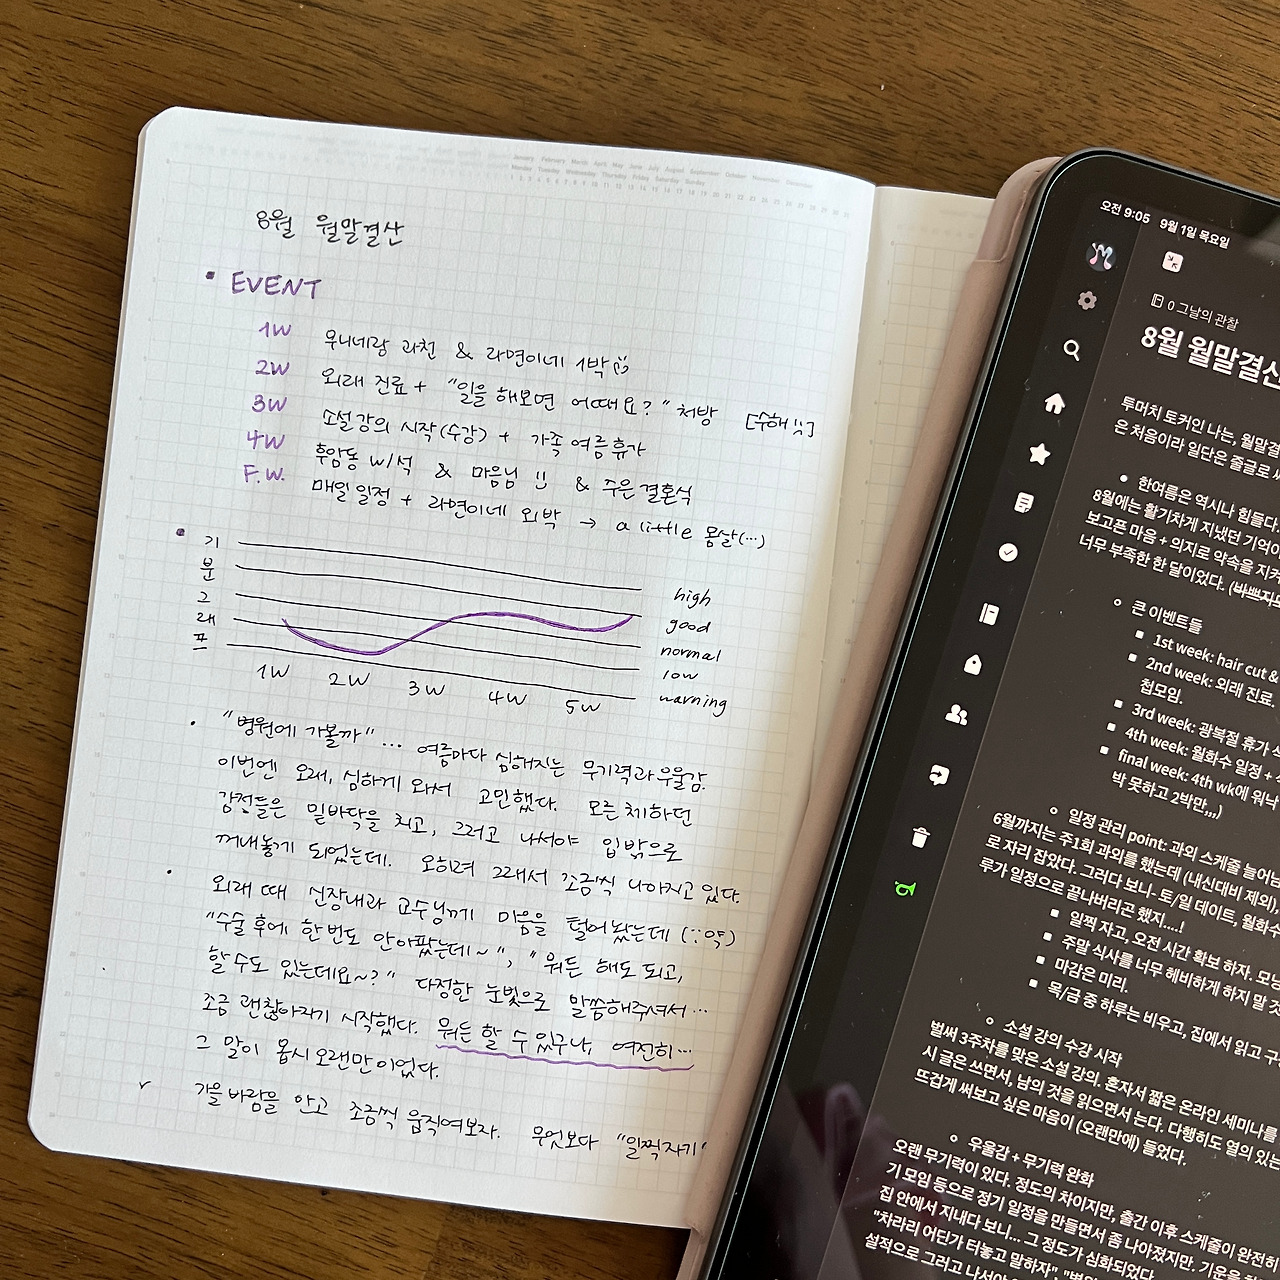 January February March April May June July August September October November December
Monday Tuesday Wednesday Thursday Friday Saturday Sunday
8월 월말결산
EVENT
1W 우니네랑 과천 & 라면이네 1박
2W 외래 진료 + "일을 해보면 어때요?" 처방 [수해 ]
3W 소설강의 시작(수강) + 가족여름휴가
4W 후암동 w/석 & 마음님 & 주은결혼식
F.W. 매일 일정 + 라면이네 외박 → a little 몸살(…)
기
분
그
래
프
high
good
normal
low
warning
1W 2W 3W 4W 5W
"병원에 가볼까"… 여름마다 심해지는 무기력과 우울감.
이번엔 오래, 심하게 와서 고민했다. 모른체하던
감정들은 밑바닥을 치고, 그러고 나서야 입밖으로
꺼내놓게 되었는데. 오히려 그래서 조금씩 나아지고 있다.
외래 때 신장내과 교수님께 마음을 털어놨는데 (∵약)
"수술 후에 한번도 안아팠는데~", "뭐든 해도 되고,
할 수도 있는데요~?" 다정한 눈빛으로 말씀해주셔서…
조금 괜찮아지기 시작했다. 뭐든 할 수 있구나, 여전히…
그 말이 몹시 오랜만이었다.
가을바람을 안고 조금씩 움직여보자. 무엇보다 "일찍자기"
오전 9:05 9월 1일 목요일
0 그날의 관찰
8월 월말결산
투머치 토커인 나는, 월말결
은 처음이라 일단은 줄글로 써
한여름은 역시나 힘들다.
8월에는 활기차게 지냈던 기억이
보고픈 마음 + 의지로 약속을 지켜
너무 부족한 한 달이었다. (바쁘자
큰 이벤트들
1st week: hair cut &
2nd week: 외래 진료,
첩모임.
3rd week: 광복절 휴가
4th week: 월화수 일정 +
final week: 4th wk에 워낙
박 못하고 2박만,,,)
일정 관리 point: 과외 스케줄 늘어
6월까지는 주1회 과외를 했는데 (내신대비 제외)
로 자리 잡았다. 그러다 보니- 토/일 데이트, 월화수
루가 일정으로 끝나버리곤 했지....!
일찍 자고, 오전 시간 확보 하자. 모
주말 식사를 너무 헤비하게 하지 말 것
마감은 미리.
목/금 중 하루는 비우고, 집에서 읽고
소설 강의 수강 시작
벌써 3주차를 맞은 소설 강의. 혼자서 짧은 온라인 세미나를
시 글은 쓰면서, 남의 것을 읽으면서 는다. 다행히도 열의 있는
뜨겁게 써보고 싶은 마음이 (오랜만에) 들었다.
우울감 + 무기력 완화
오랜 무기력이 있다. 정도의 차이지만, 출간 이후 스케줄이 완전히
기 모임 등으로 정기 일정을 만들면서 좀 나아졌지만. 기운을
집 안에서 지내다 보니... 그 정도가 심화되었다.
"차라리 어딘가 터놓고 말하자",
설적으로 그러고 나서야